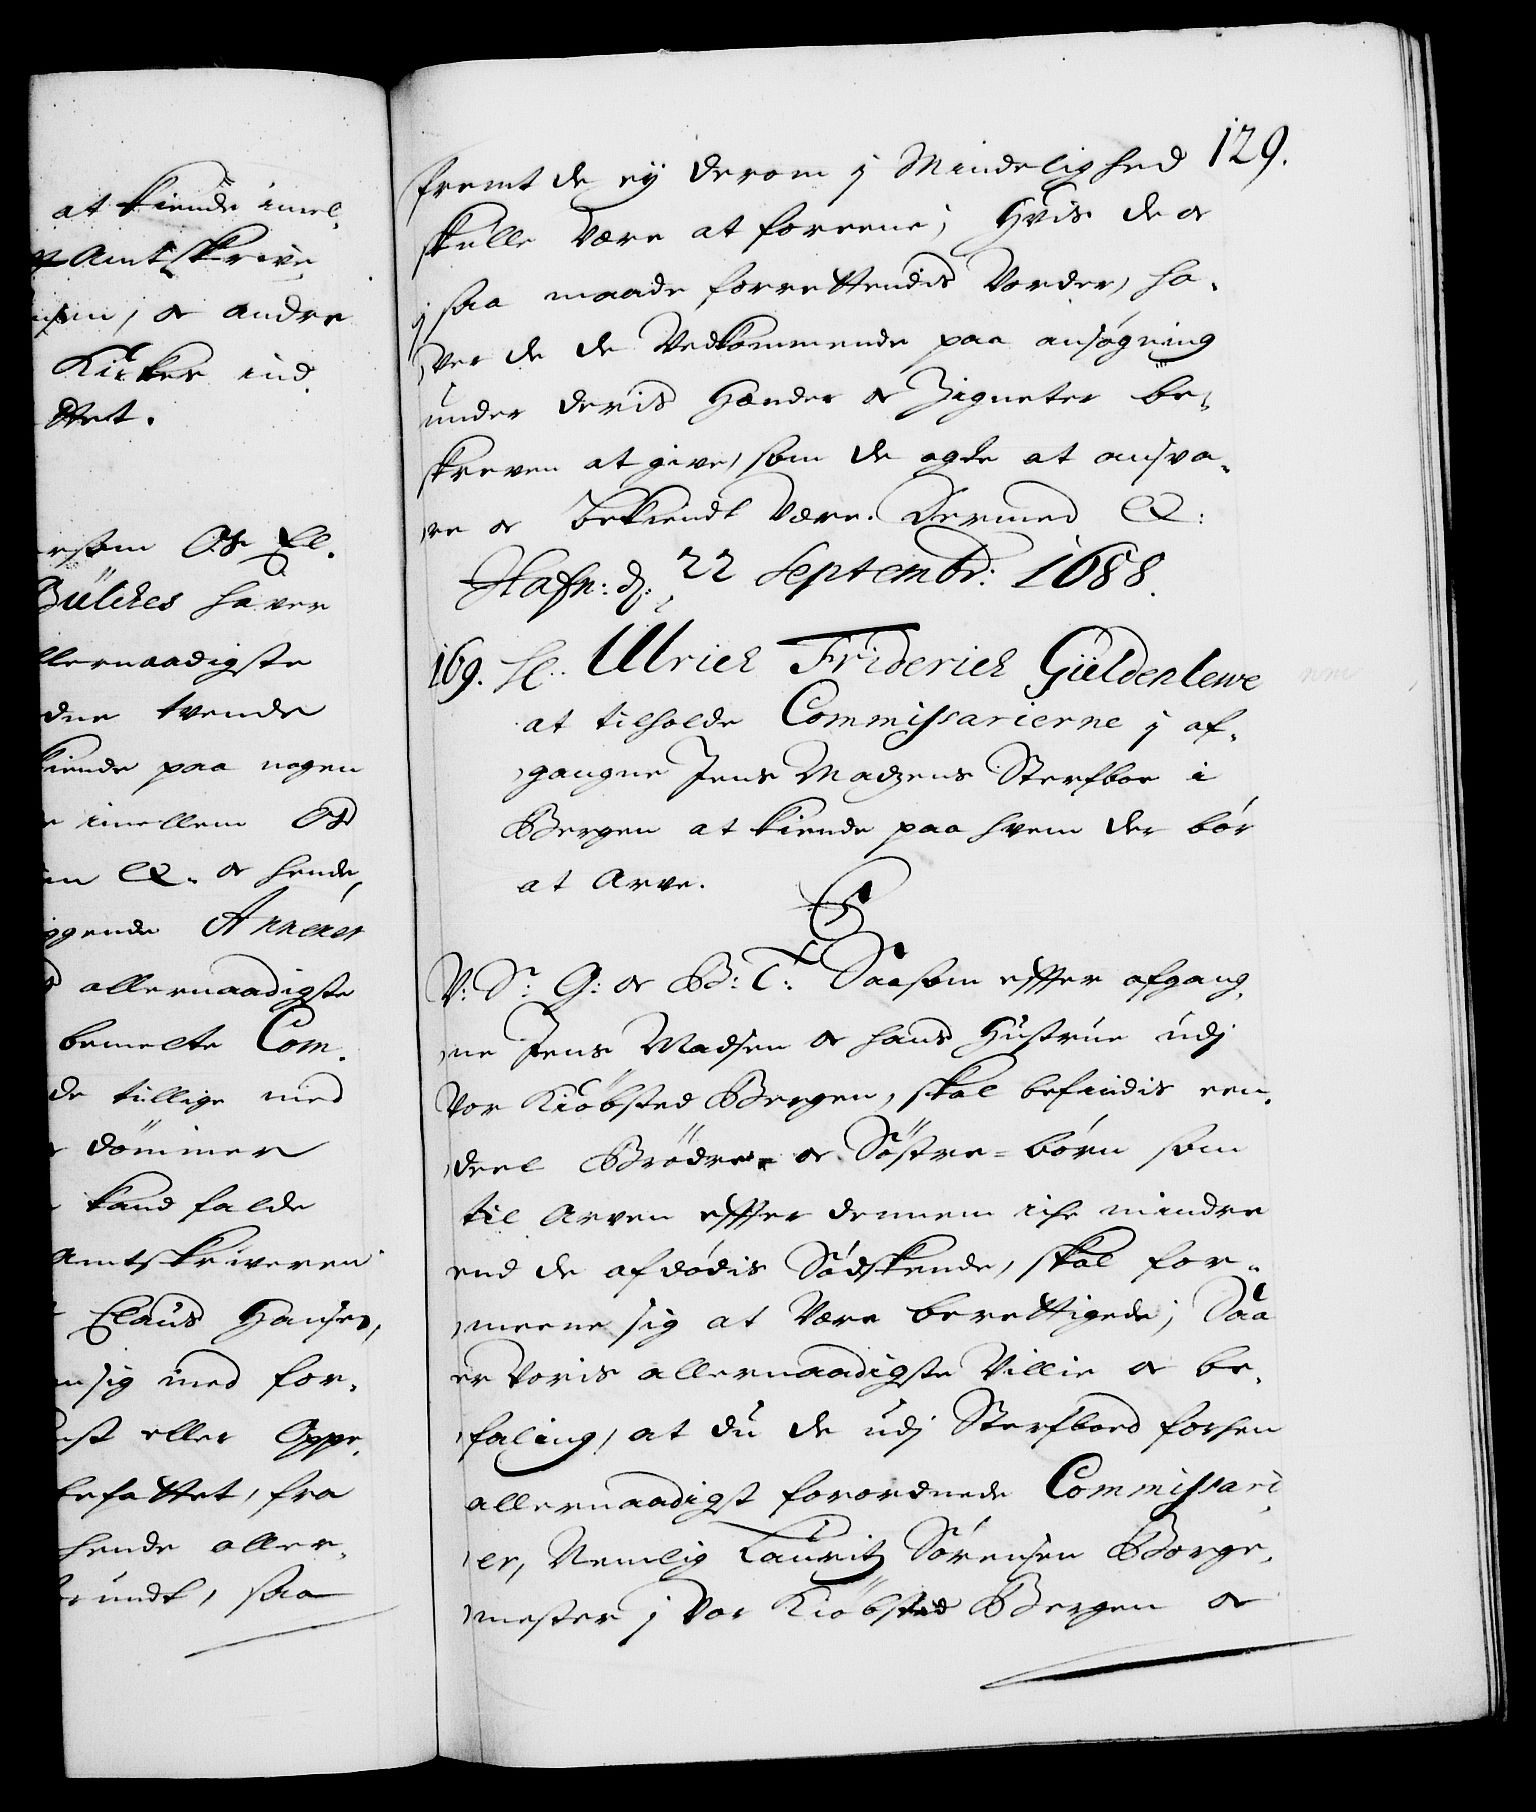 at kiende imel-
Amtskrive
, or andre
Kircker ind
ttet.
ersom Os El.
Bülches haver
llernaadigste
dne tvende
kiende paa nogen
imellem Os
en &. or hende,
iggende Annexer
allernaadigste
bemelte Com-
de tillige med
dömmer
kand falde
Amtskriveren
Claus Hansen,
sig med for-
eller Oppe-
befattet, fra
hende aller-
grundt, saa
129.
fremt de ey derom j Mindelighed
skulle være at foreene; Hvis de or
j saa maade forrettendis vorder, ha-
ver de de Vedkommende paa ansøgning
under deris Hænder or Zigneter be-
skreven at give, som de agte at ansva-
re or bekiendt være. Dermed &:
Hafn: d: 22 Septembr: 1688.
169. H: Ulrich Friderich Güldenlewe
at tilholde Commissarierne j af-
gangne Jens Madzens Sterfboe i
Bergen at kiende paa hvem der bør
at Arve.
C5
V: Sr: G: or B: T: Saasom effter afgang-
ne Jens Madsen or hans Hustrue udj
vor Kiöbsted Bergen, skal befindis een
deel Brödre or Söstre-börn som
til Arven effter dennem iche mindre
end de afdödis Södskende, skal for-
meene sig at være berettigede; Saa
er voris allernaadigste Villie or be-
faling, at du de udj Sterfboed forhen
allernaadigst forordnede Commissari-
er, Nemlig Lauritz Sörensen Borge-
mester j vor Kiöbsted Bergen or